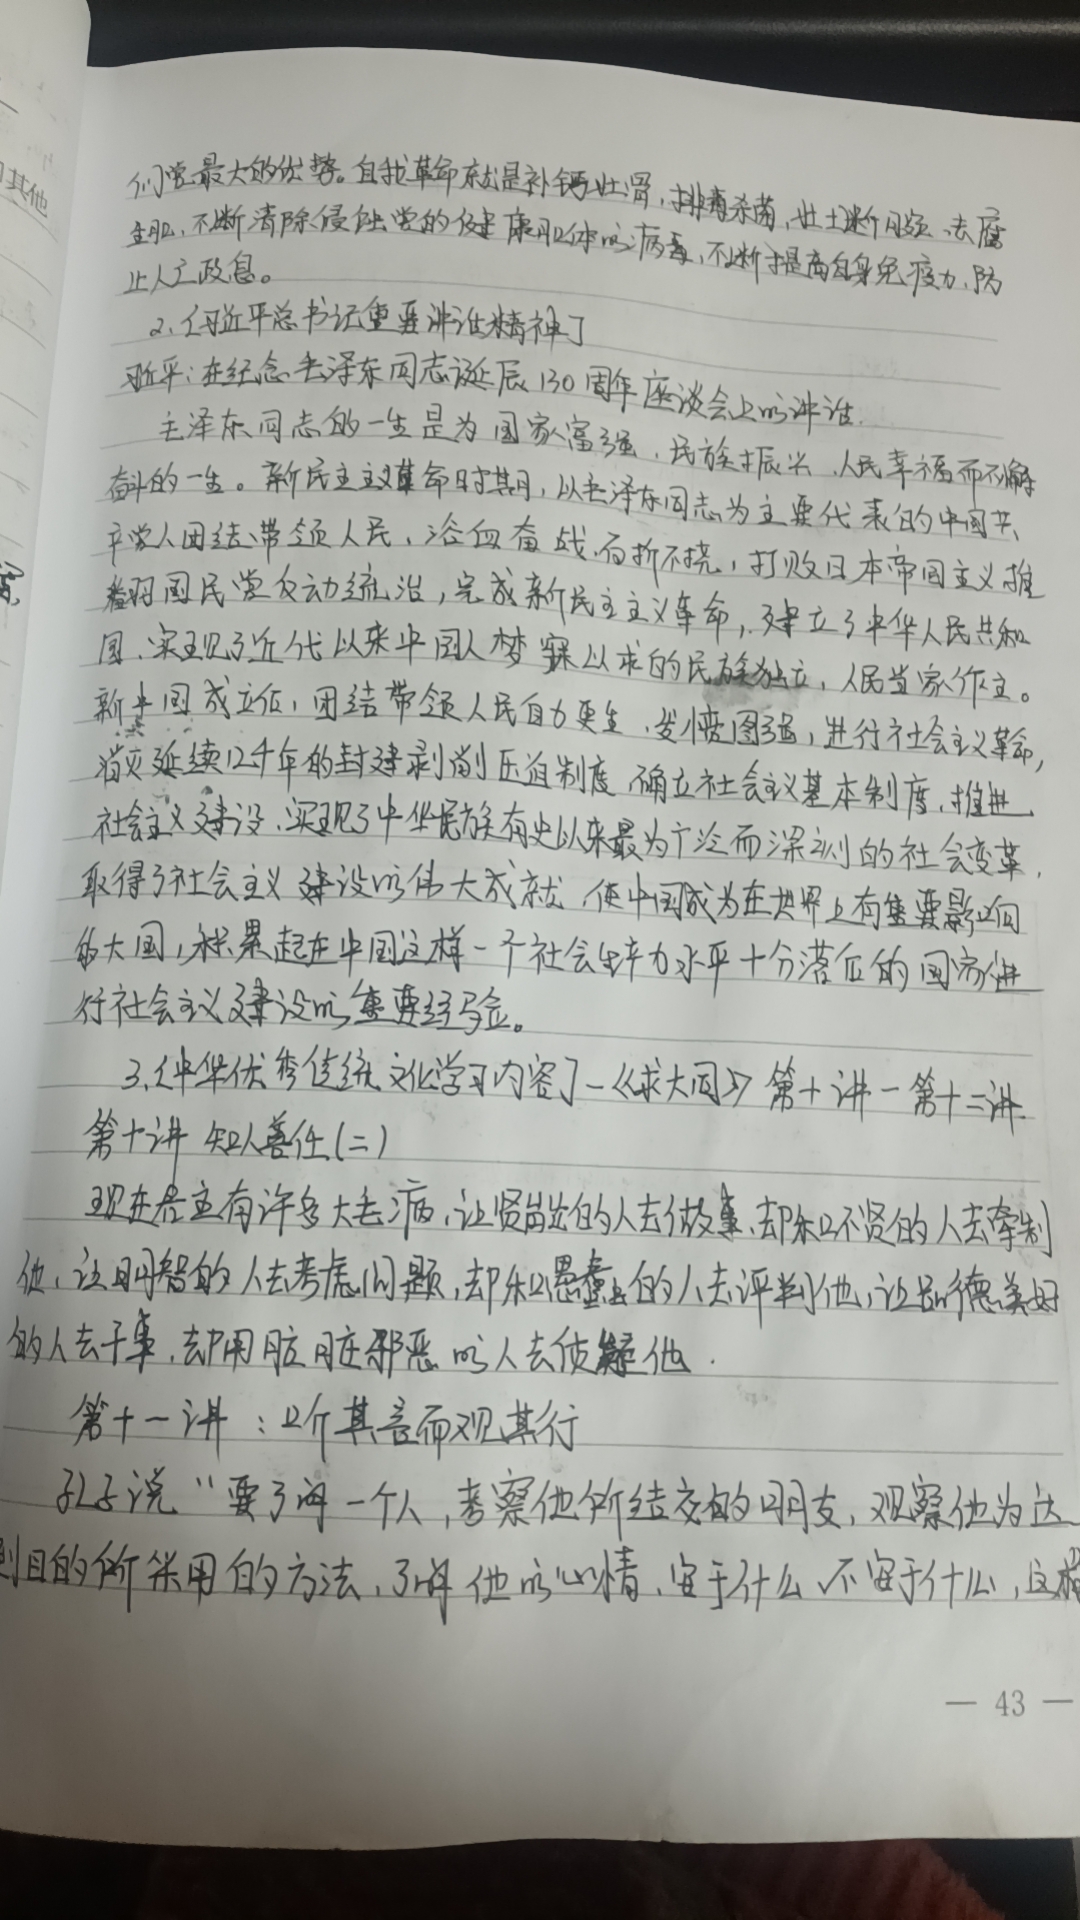 们党最大的优势。自我革命就是补钙壮骨,排毒杀菌,壮士断腕、去腐
生肌,不断清除侵蚀党的健康肌体的病毒,不断提高自身免疫力,防
止人亡政息。
2.【习近平总书记重要讲话精神】
习近平:在纪念毛泽东同志诞辰130周年座谈会上的讲话.
毛泽东同志的一生是为国家富强、民族振兴、人民幸福而不懈
奋斗的一生。新民主主义革命时期,以毛泽东同志为主要代表的中国共
产党人团结带领人民,浴血奋战、百折不挠,打败日本帝国主义,推
翻国民党反动统治,完成新民主主义革命,建立了中华人民共和
国,实现了近代以来中国人梦寐以求的民族独立,人民当家作主。
新中国成立后,团结带领人民自力更生、发愤图强,进行社会主义革命,
消灭延续几千年的封建剥削压迫制度,确立社会主义基本制度,推进
社会主义建设,实现了中华民族有史以来最为广泛而深刻的社会变革,
取得了社会主义建设的伟大成就,使中国成为在世界上有重要影响
的大国,积累起在中国这样一个社会生产力水平十分落后的国家进
行社会主义建设的重要经验。
3.【中华优秀传统文化学习内容】—《求大同》第十讲—第十二讲
第十讲 知人善任(二)
现在君主有许多大毛病,让贤能的人去做事,却和不贤的人去牵制
他,让明智的人去考虑问题,却和愚蠢的人去评判他,让品德美好
的人去干事,却用肮脏邪恶的人去质疑他.
第十一讲:听其言而观其行
孔子说"要了解一个人,考察他所结交的朋友,观察他为达
到目的所采用的方法,了解他的心情,安于什么,不安于什么,这样
— 43 —
其他